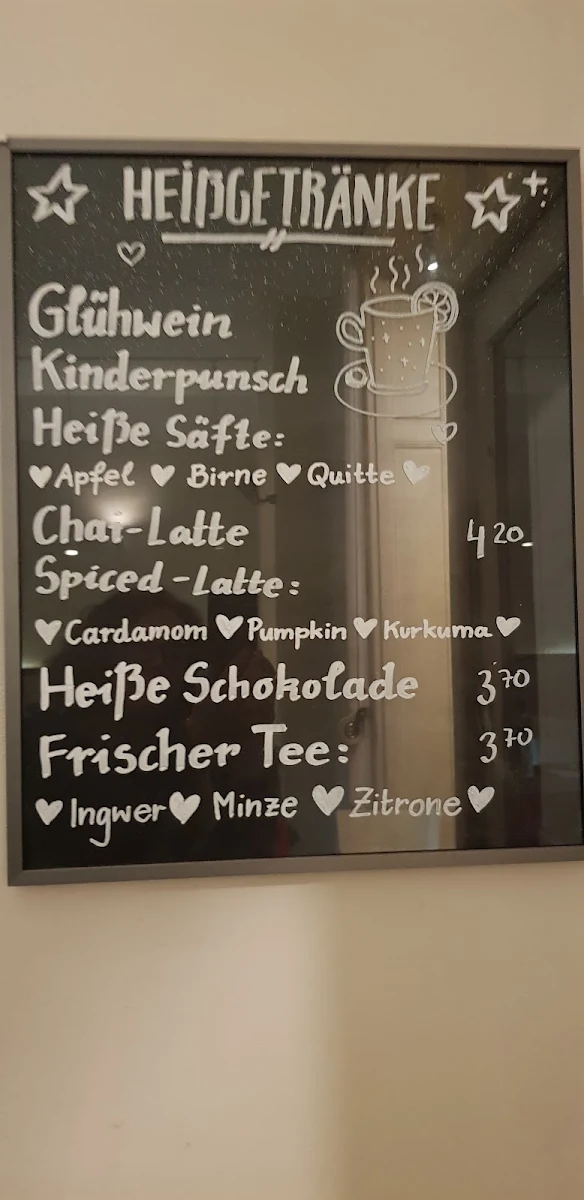 HEIßGETRÄNKE
Glühwein
Kinderpunsch
Heiße Säfte:
♥ Apfel ♥ Birne ♥ Quitte ♥
Chai-Latte 4 20
Spiced-Latte:
♥ Cardamom ♥ Pumpkin ♥ Kurkuma ♥
Heiße Schokolade 3 70
Frischer Tee: 3 70
♥ Ingwer ♥ Minze ♥ Zitrone ♥